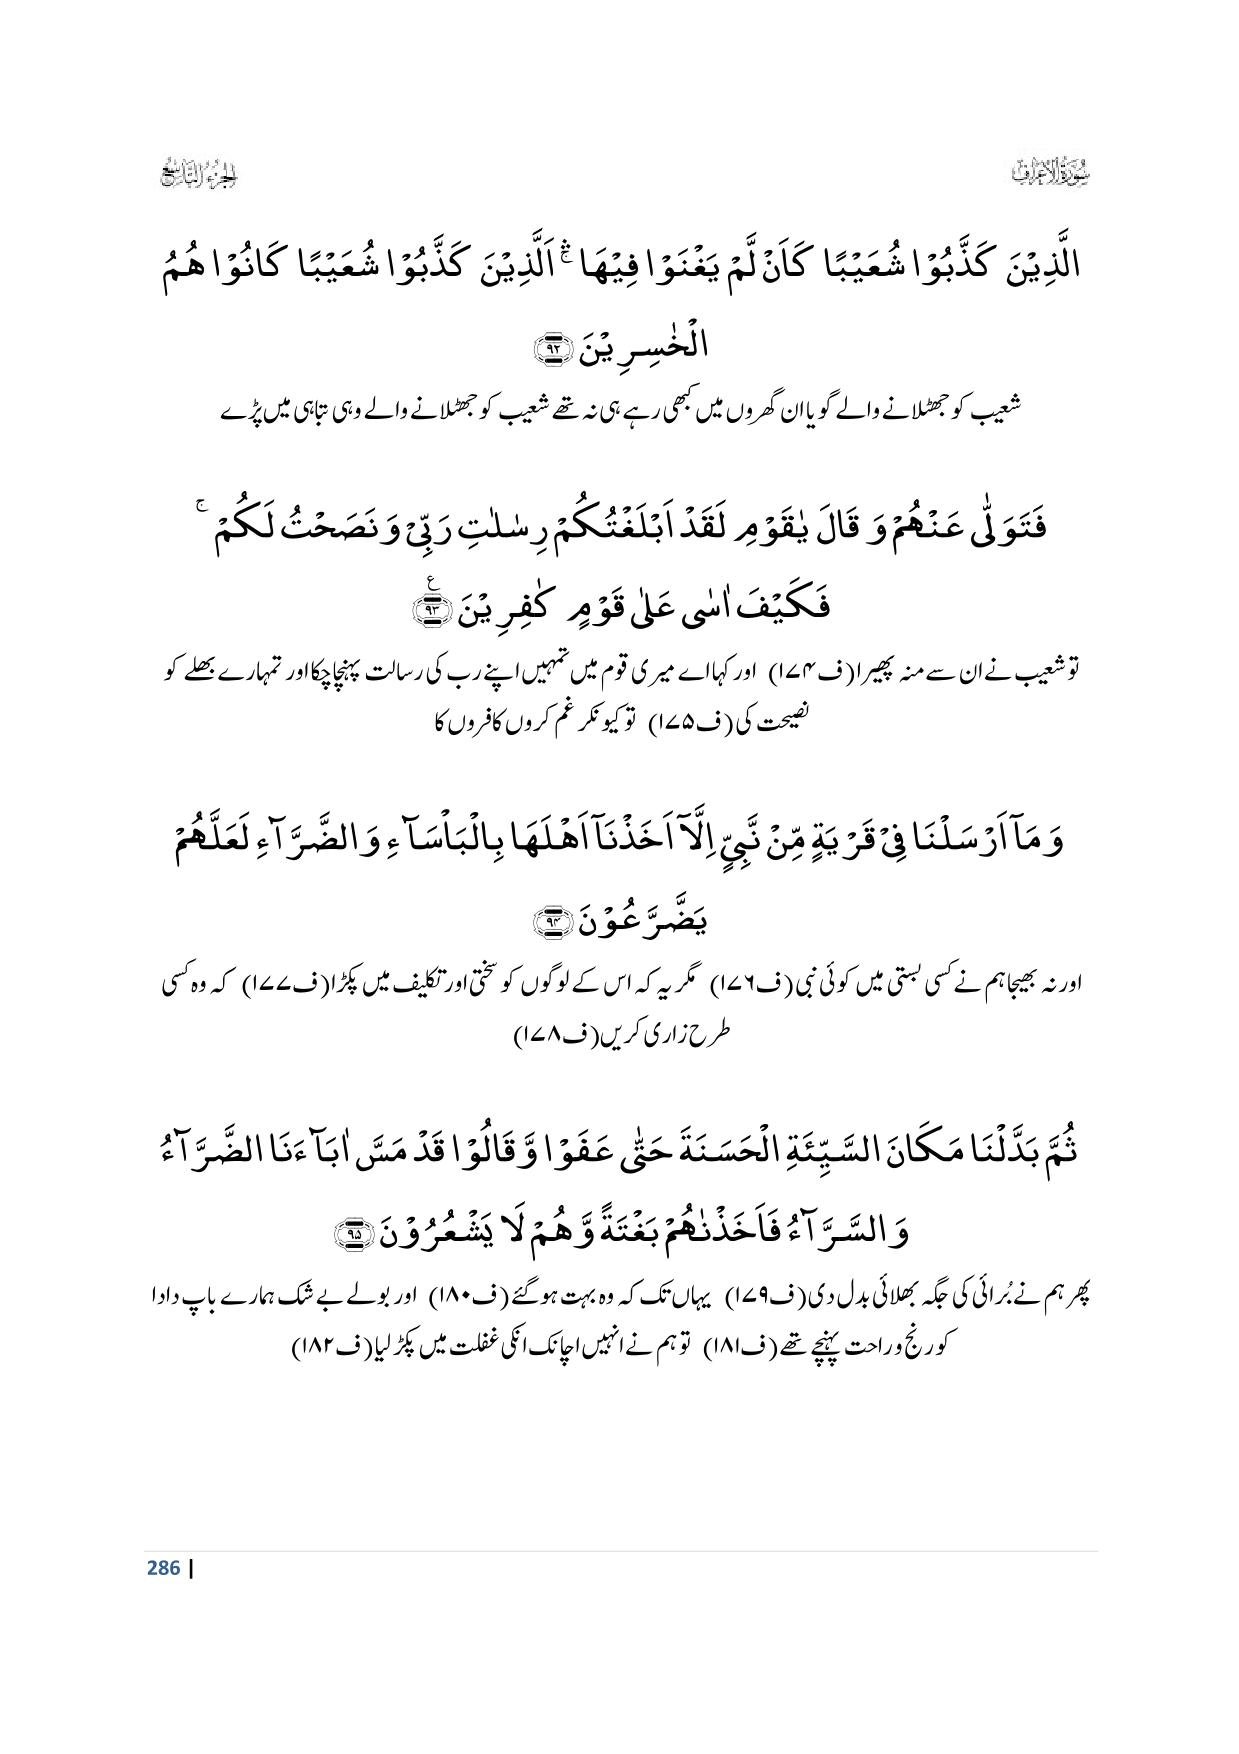 سُوۡرَةُ الۡاَعۡرَافِ
الجزء التاسع
الَّذِيۡنَ كَذَّبُوۡا شُعَيۡبًا كَاَنۡ لَّمۡ يَغۡنَوۡا فِيۡهَا ۛۚ اَلَّذِيۡنَ كَذَّبُوۡا شُعَيۡبًا كَانُوۡا هُمُ
الۡخٰسِرِيۡنَ ﴿۹۲﴾
شعیب کو جھٹلانے والے گویا ان گھروں میں کبھی رہے ہی نہ تھے شعیب کو جھٹلانے والے وہی تباہی میں پڑے
فَتَوَلّٰى عَنۡهُمۡ وَ قَالَ يٰقَوۡمِ لَقَدۡ اَبۡلَغۡتُكُمۡ رِسٰلٰتِ رَبِّىۡ وَ نَصَحۡتُ لَكُمۡ ۚ
فَكَيۡفَ اٰسٰى عَلٰى قَوۡمٍ كٰفِرِيۡنَ ﴿۹۳﴾ ع
تو شعیب نے ان سے منہ پھیرا (ف۱۷۴) اور کہا اے میری قوم میں تمہیں اپنے رب کی رسالت پہنچا چکا اور تمہارے بھلے کو
نصیحت کی (ف۱۷۵) تو کیونکر غم کروں کافروں کا
وَ مَاۤ اَرۡسَلۡنَا فِىۡ قَرۡيَةٍ مِّنۡ نَّبِىٍّ اِلَّاۤ اَخَذۡنَاۤ اَهۡلَهَا بِالۡبَاۡسَآءِ وَ الضَّرَّآءِ لَعَلَّهُمۡ
يَضَّرَّعُوۡنَ ﴿۹۴﴾
اور نہ بھیجا ہم نے کسی بستی میں کوئی نبی (ف۱۷۶) مگر یہ کہ اس کے لوگوں کو سختی اور تکلیف میں پکڑا (ف۱۷۷) کہ وہ کسی
طرح زاری کریں (ف۱۷۸)
ثُمَّ بَدَّلۡنَا مَكَانَ السَّيِّئَةِ الۡحَسَنَةَ حَتّٰى عَفَوۡا وَّ قَالُوۡا قَدۡ مَسَّ اٰبَآءَنَا الضَّرَّآءُ
وَ السَّرَّآءُ فَاَخَذۡنٰهُمۡ بَغۡتَةً وَّ هُمۡ لَا يَشۡعُرُوۡنَ ﴿۹۵﴾
پھر ہم نے بُرائی کی جگہ بھلائی بدل دی (ف۱۷۹) یہاں تک کہ وہ بہت ہو گئے (ف۱۸۰) اور بولے بے شک ہمارے باپ دادا
کو رنج و راحت پہنچے تھے (ف۱۸۱) تو ہم نے انہیں اچانک انکی غفلت میں پکڑ لیا (ف۱۸۲)
286 |